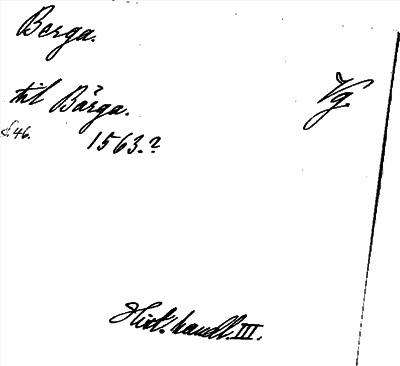 Berga.
til Bärga. Vg.
s. 46. 1563.?
Hist. handl. III.